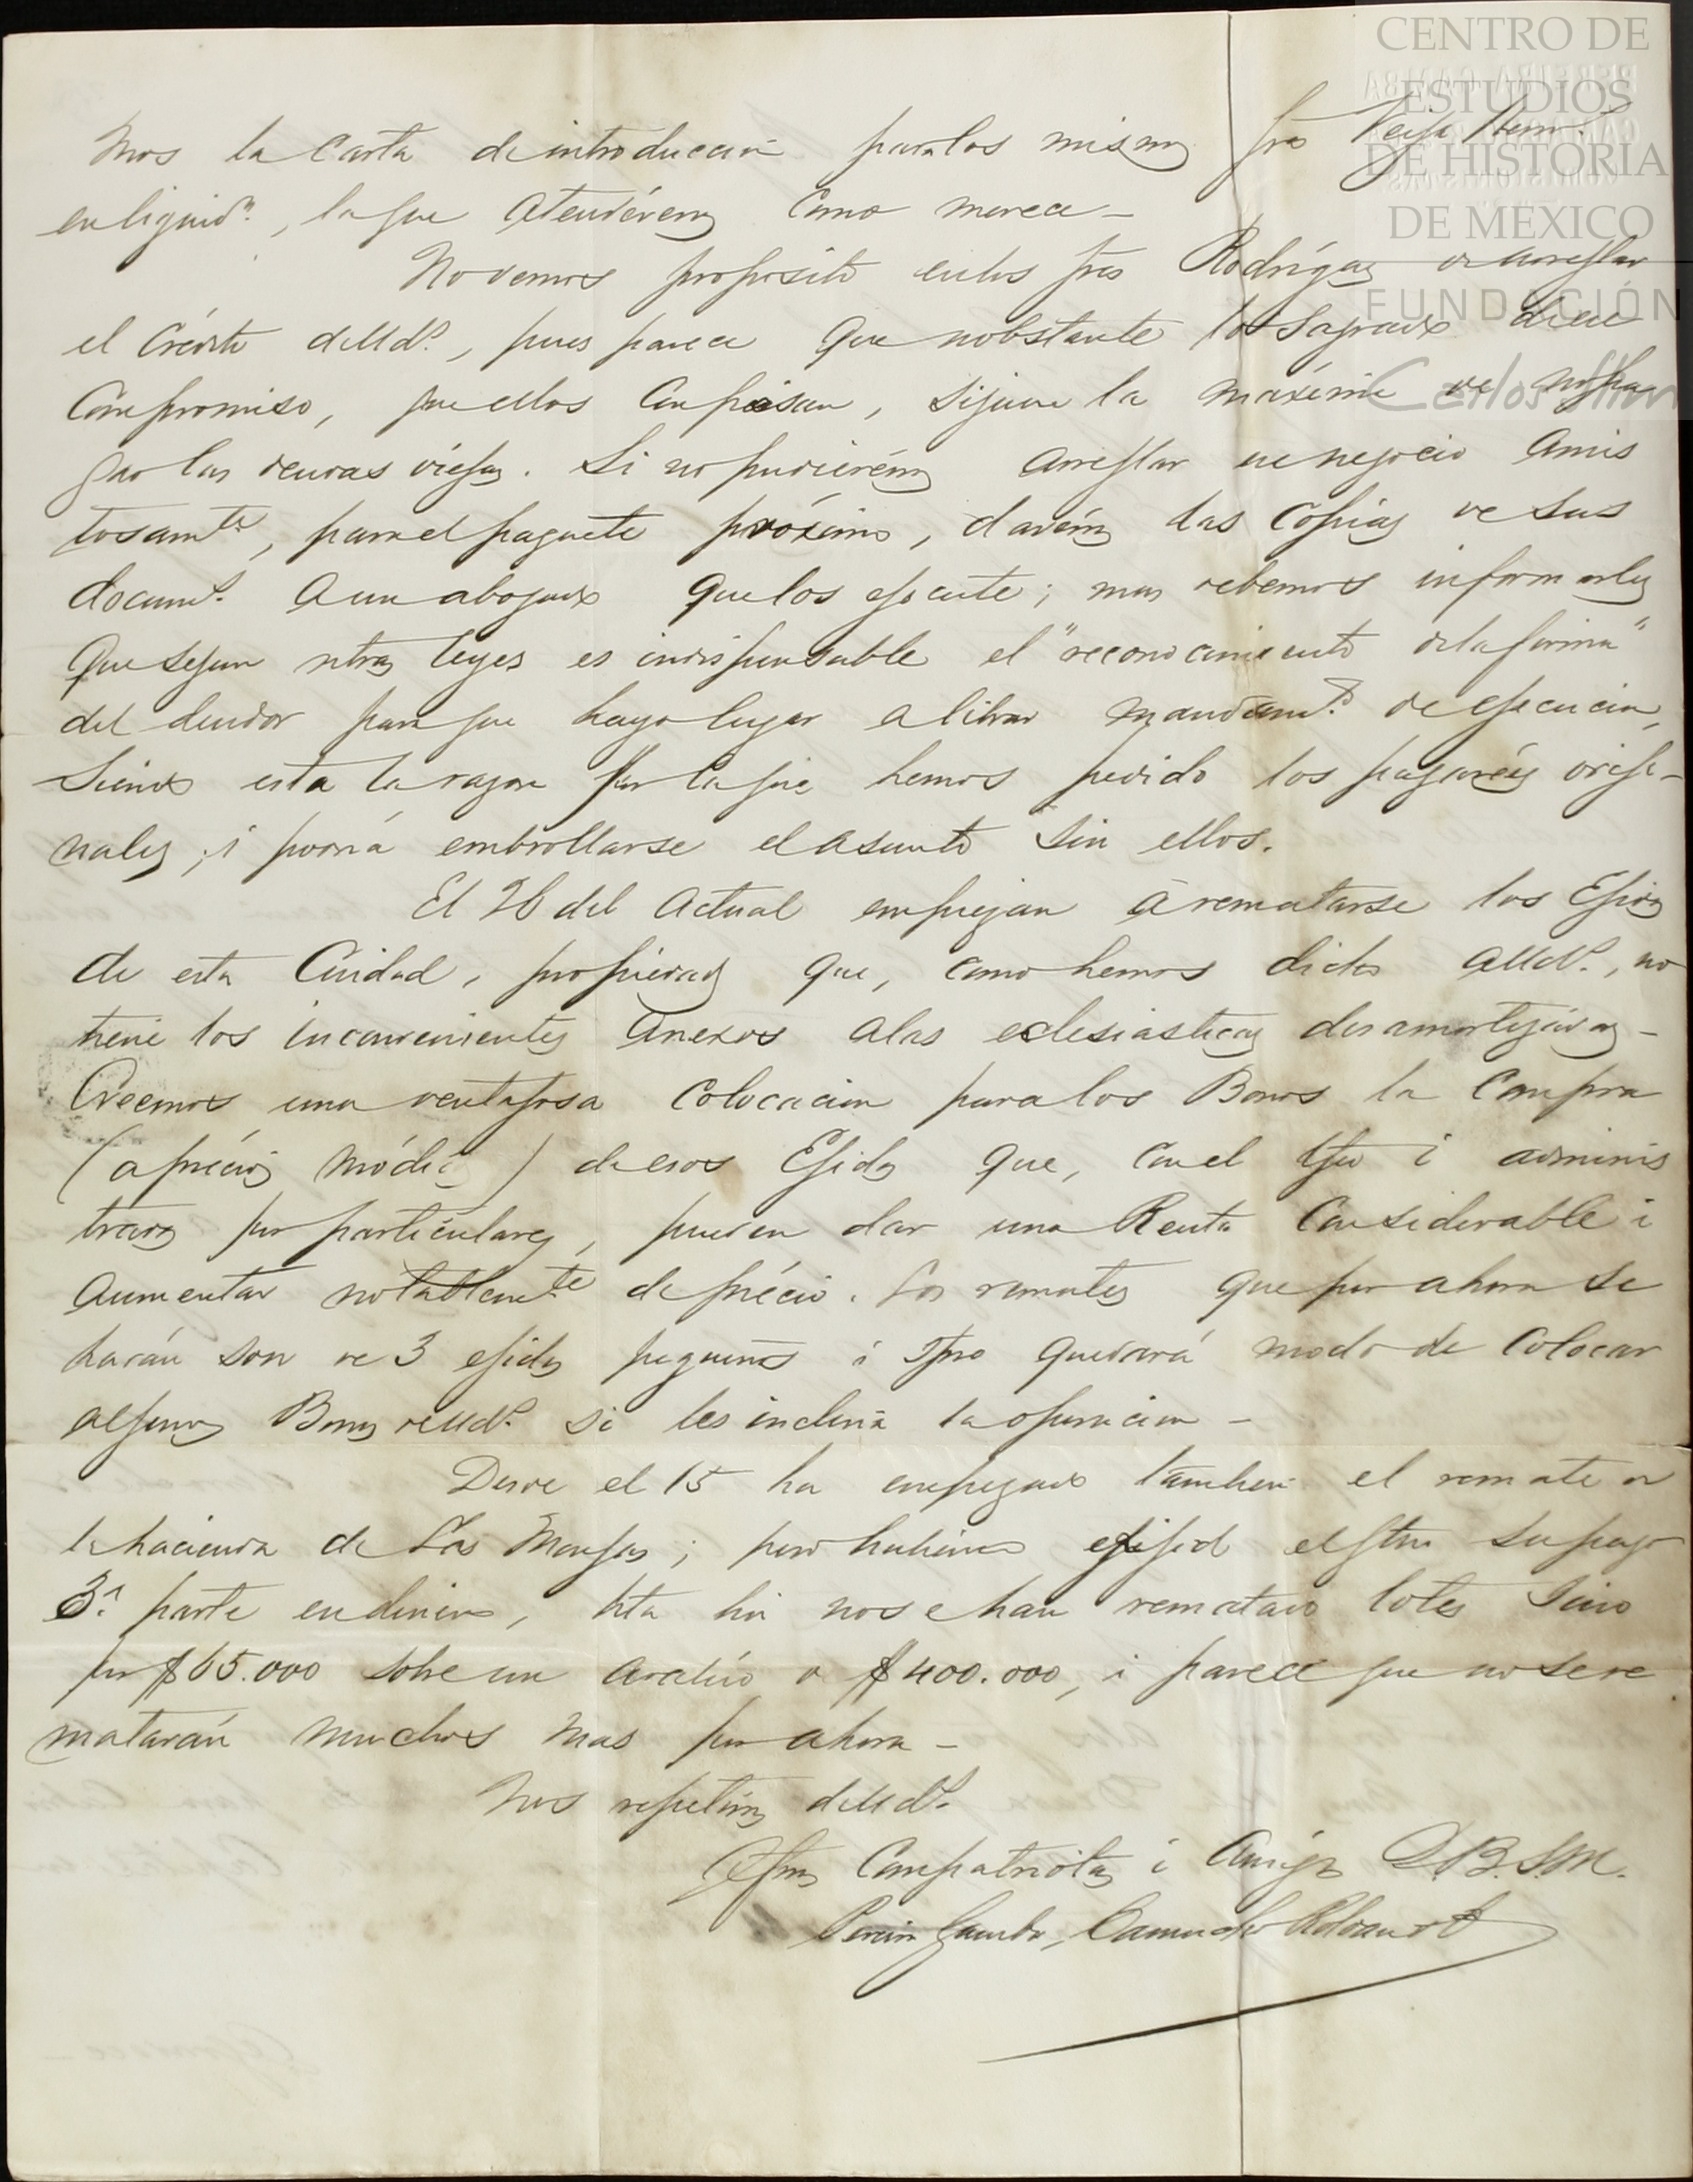 CENTRO DE
ESTUDIOS
DE HISTORIA
DE MEXICO
FUNDACIÓN
Carlos Slim
mos la carta de introduccion para los mismos Sres
en liquidn., la que atenderémos como merece –
No vemos proposito en los Sres Rodríguez de arreglar
el Crédito de Uds., pues parece que nobstante lo sagrado de su
Compromiso, que ellos confiesan, siguen la maxima de no pa
gar las deudas viejas. Si no pudierémos arreglar ese negocio amis
tosamte, para el paquete próximo, darémos las copias de sus
documts. a un abogado que los ejecute; mas debemos informarles
que segun ntras leyes es indispensable el "reconocimiento de la firma"
del deudor para que haya lugar a librar mandamto. de ejecucion,
Siendo esta la razon por la que hemos pedido los pagarées oriji-
nales; i podrá embrollarse el asunto sin ellos.
El 26 del actual empiezan á rematarse los Ejidos
de esta Ciudad, propiedades que, como hemos dicho a Uds., no
tiene los inconvenientes anexos a las eclesiasticas desamortizadas –
Creemos una ventajosa colocacion para los Bonos la compra
(a précios módicos) de esos Ejidos que, con el i adminis
trados por particulares, pueden dar una Renta considerable i
aumentar notablemte de précio. Los remates que por ahora se
harán son de 3 ejidos pequeños i quedará modo de colocar
algunos Bonos de Uds. si les inclina la operacion –
Desde el 15 ha empezado tambien el remate de
la hacienda de Las Monjas; pero habiendo el su pago
3a. parte en dinero, hta hoi no se han rematado lotes sino
por $65.000 sobre un avalúo de $400.000, i parece que no se re
matarán muchos mas por ahora –
Nos repetimos de Uds.
Afmos Compatriotas i Amigos Q.B.S.M.
Pereira Gamba, Camacho Roldan &